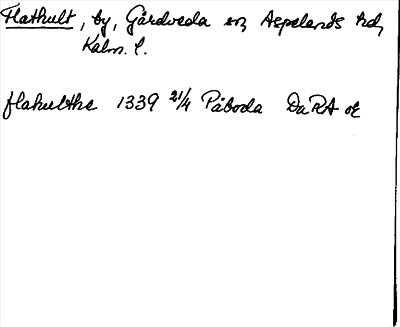 Flathult, by, Gårdveda sn, Aspelands hd,
Kalm. l.
flahulthe 1339 21/4 Påboda DaRA or